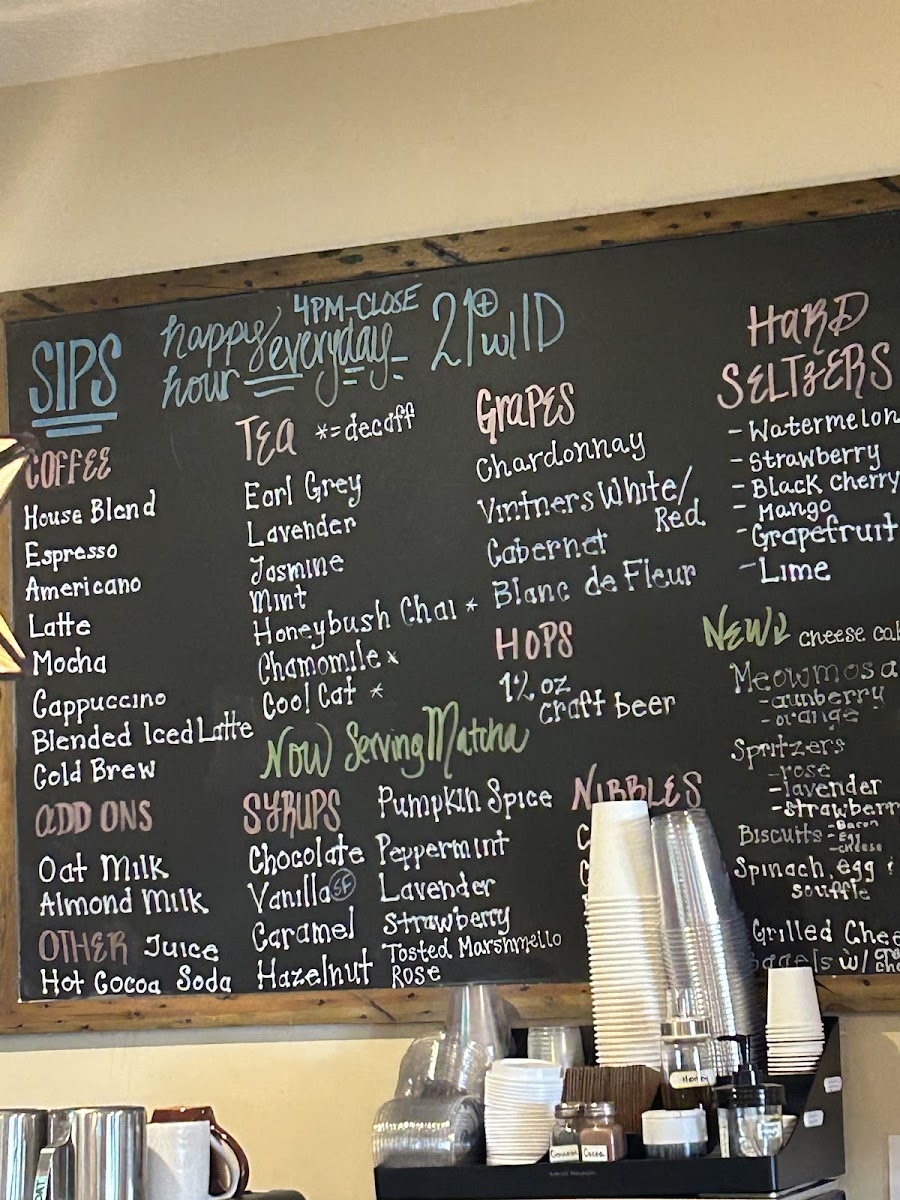 SIPS
happy hour everyday
4PM-CLOSE
21+ w/ID
COFFEE
House Blend
Espresso
Americano
Latte
Mocha
Cappuccino
Blended Iced Latte
Cold Brew
ADD ONS
Oat Milk
Almond Milk
OTHER Juice
Hot Cocoa Soda
TEA *=decaff
Earl Grey
Lavender
Jasmine
Mint
Honeybush Chai *
Chamomile *
Cool Cat *
Now Serving Matcha
SYRUPS
Chocolate
Vanilla SF
Caramel
Hazelnut
Pumpkin Spice
Peppermint
Lavender
Strawberry
Tosted Marshmello
Rose
GRAPES
Chardonnay
Vintners White/
Red
Cabernet
Blanc de Fleur
HOPS
12 oz
craft beer
NIBBLES
HARD
SELTZERS
- Watermelon
- Strawberry
- Black Cherry
- Mango
- Grapefruit
- Lime
NEW cheese
Meowmosa
- orange
Spritzers
- rose
- lavender
Biscuits - Bacon
- Egg
- cheese
Spinach, egg
souffle
Grilled
Bagels w/
Cocoa